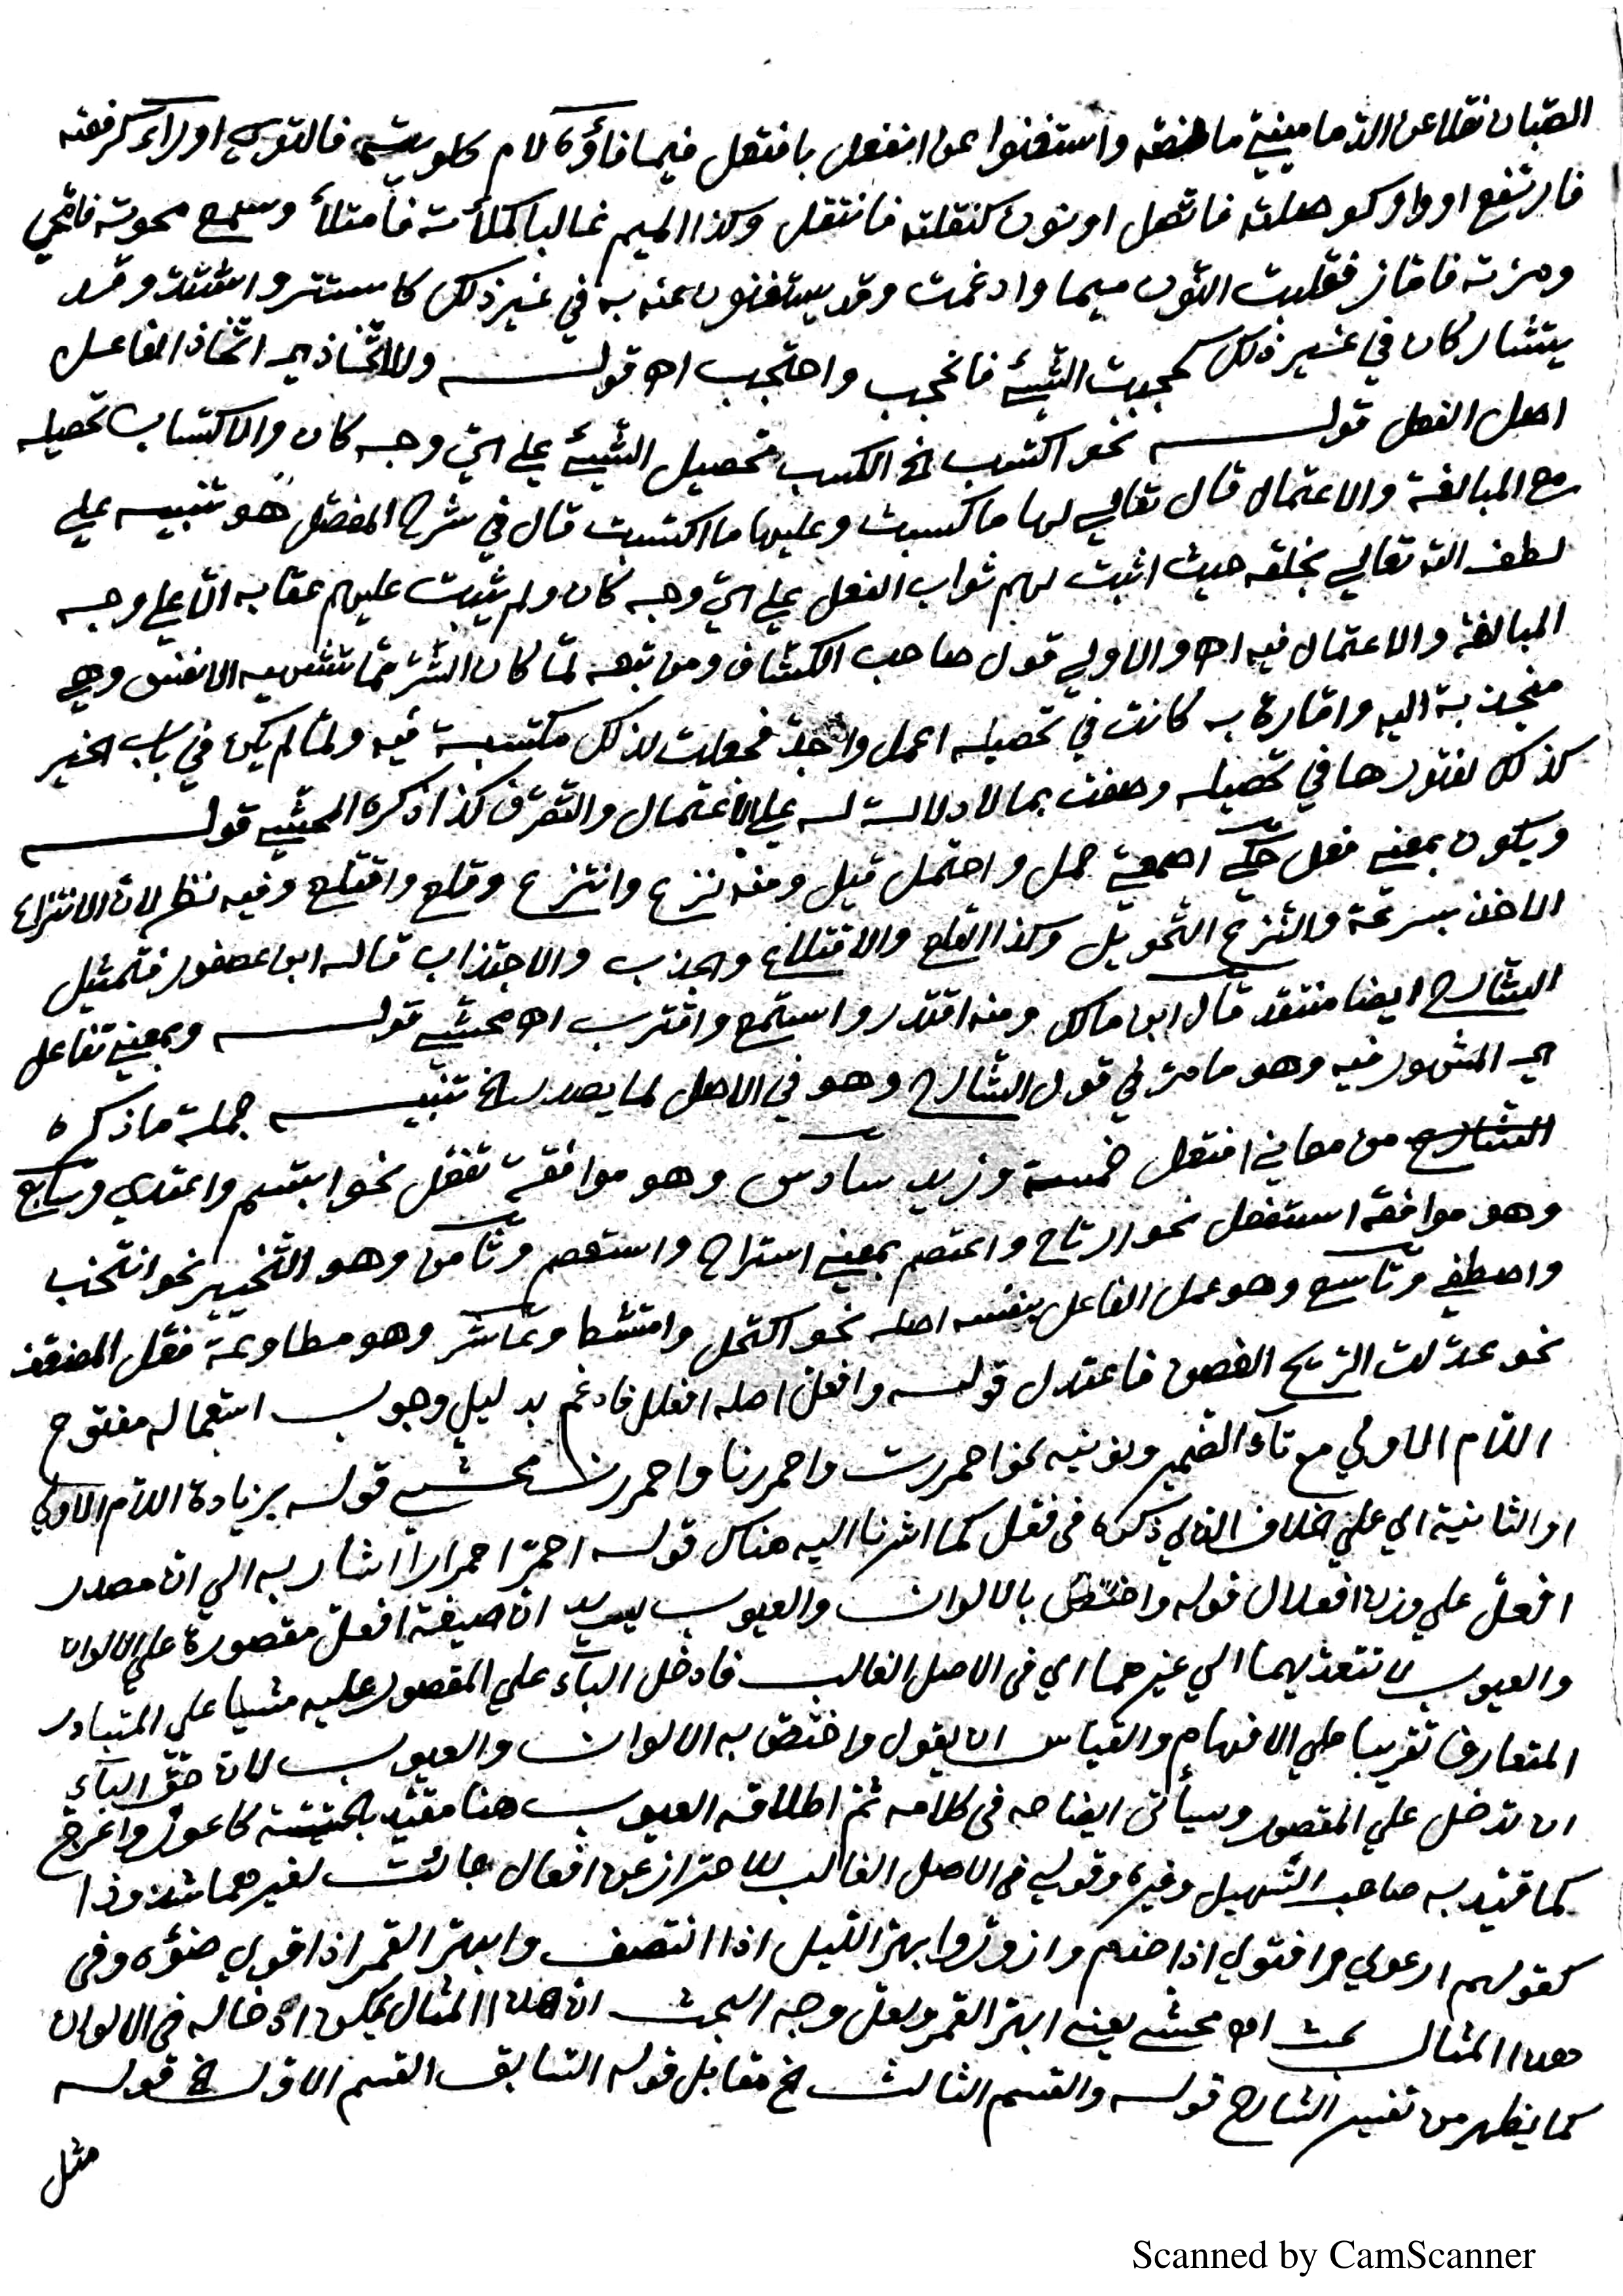 الصبان نقلا عن الدماميني ما نصه واستغنوا عن انفعل بافتعل فيما فاؤه لام كلويته فالتوى او راء كرفعته
فارتفع او واو كوصلته فاتصل او نون كنقلته فانتقل وكذا الميم غالبا كملأته فامتلأ وسمع محوته فامحى
ومزته فاماز فقلبت النون ميما وادغمت وقد يستغنون عنه به في غير ذلك كاستتر واشتد وقد
يتشاركان في غير ذلك كحجبت الشيئ فانحجب واحتجب اه قوله وللاتخاذ اي اتخاذ الفاعل
اصل الفعل قوله نحو اكتسب الخ الكسب تحصيل الشيئ على اي وجه كان والاكتساب تحصيله
مع المبالغة والاعتمال قال تعالى لها ما كسبت وعليها ما اكتسبت قال في شرح المفصل هو تنبيه على
لطف الله تعالى بخلقه حيث اثبت لهم ثواب الفعل على اي وجه كان ولم يثبت عليهم عقابه الا على وجه
المبالغة والاعتمال فيه اه والاولى قول صاحب الكشاف ومن تبعه لما كان الشر مما تشتهيه الانفس وهي
منجذبة اليه وامارة به كانت في تحصيله اعمل واجد فجعلت لذلك مكتسبة فيه ولما لم يكن في باب الخير
كذلك لفتورها في تحصيله وصفت بما لا دلالة له على الاعتمال والتصرف كذا ذكره المحشي قوله
ويكون بمعنى فعل حكى اصمعي حمل واحتمل قيل ومنه نزع وانتزع وقلع واقتلع وفيه نظر لان الانتزاع
الاخذ بسرعة والنزع التحويل وكذا القلع والاقتلاع والجذب والاجتذاب قاله ابن عصفور فتمثيل
الشارح ايضا منتقد قال ابن مالك ومنه اقتدر واستمع واقترب اه محشي قوله وبمعنى تفاعل
اي المشهور فيه وهو ما مر في قول الشارح وهو في الاصل لما يصدر الخ تنبيه جملة ما ذكره
الشارح من معاني افتعل خمسة وزيد سادس وهو موافقة تفعل نحو ابتسم واعتدى وسابع
وهو موافقة استفعل نحو ارتاح واعتصم بمعنى استراح واستعصم وثامن وهو التخيير نحو انتخب
واصطفى وتاسع وهو عمل الفاعل بنفسه اصله نحو اكتحل وامتشط وعاشر وهو مطاوعة فعل المضعف
نحو عدلت الريح الغصن فاعتدل قوله وافعل اصله افعلل فادغم بدليل وجوب استعماله مفتوح
اللام الاولى مع تاء الضمير ونونيه نحو احمررت واحمررنا واحمررن محشي قوله بزيادة اللام الاولى
او الثانية اي على الخلاف الذي ذكره في فعل كما اشرنا اليه هناك قوله احمر احمرارا اشار به الى ان مصدر
افعل على وزن افعلال قوله واختص بالالوان والعيوب يريد ان صيغة افعل مقصورة على الالوان
والعيوب لا تتعديهما الى غيرهما اي في الاصل الغالب فادخل الباء على المقصور عليه مشيا على المتبادر
المتعارف تقريبا على الافهام والقياس ان يقول واختص به الالوان والعيوب لان حق الباء
ان تدخل على المقصور وسيأتي ايضاحه في كلامه ثم اطلاقه العيوب هنا مقيد بالحسية كاعور واعرج
كما قيد به صاحب التسهيل وغيره وقولي في الاصل الغالب للاحتراز عن افعال جائت لغيرهما شذوذا
كقولهم ارعوى واقتوى اذا خدم وازور وابهر الليل اذا انتصف وابهر القمر اذا قوي ضوءه وفي
هذا المثال بحث اه محشي يعني ابهر القمر ولعل وجه البحث ان هذا المثال يمكن ادخاله في الالوان
كما يظهر من تفسير الشارح قوله والقسم الثالث الخ مقابل قوله السابق القسم الاول الخ قوله
مثل
Scanned by CamScanner